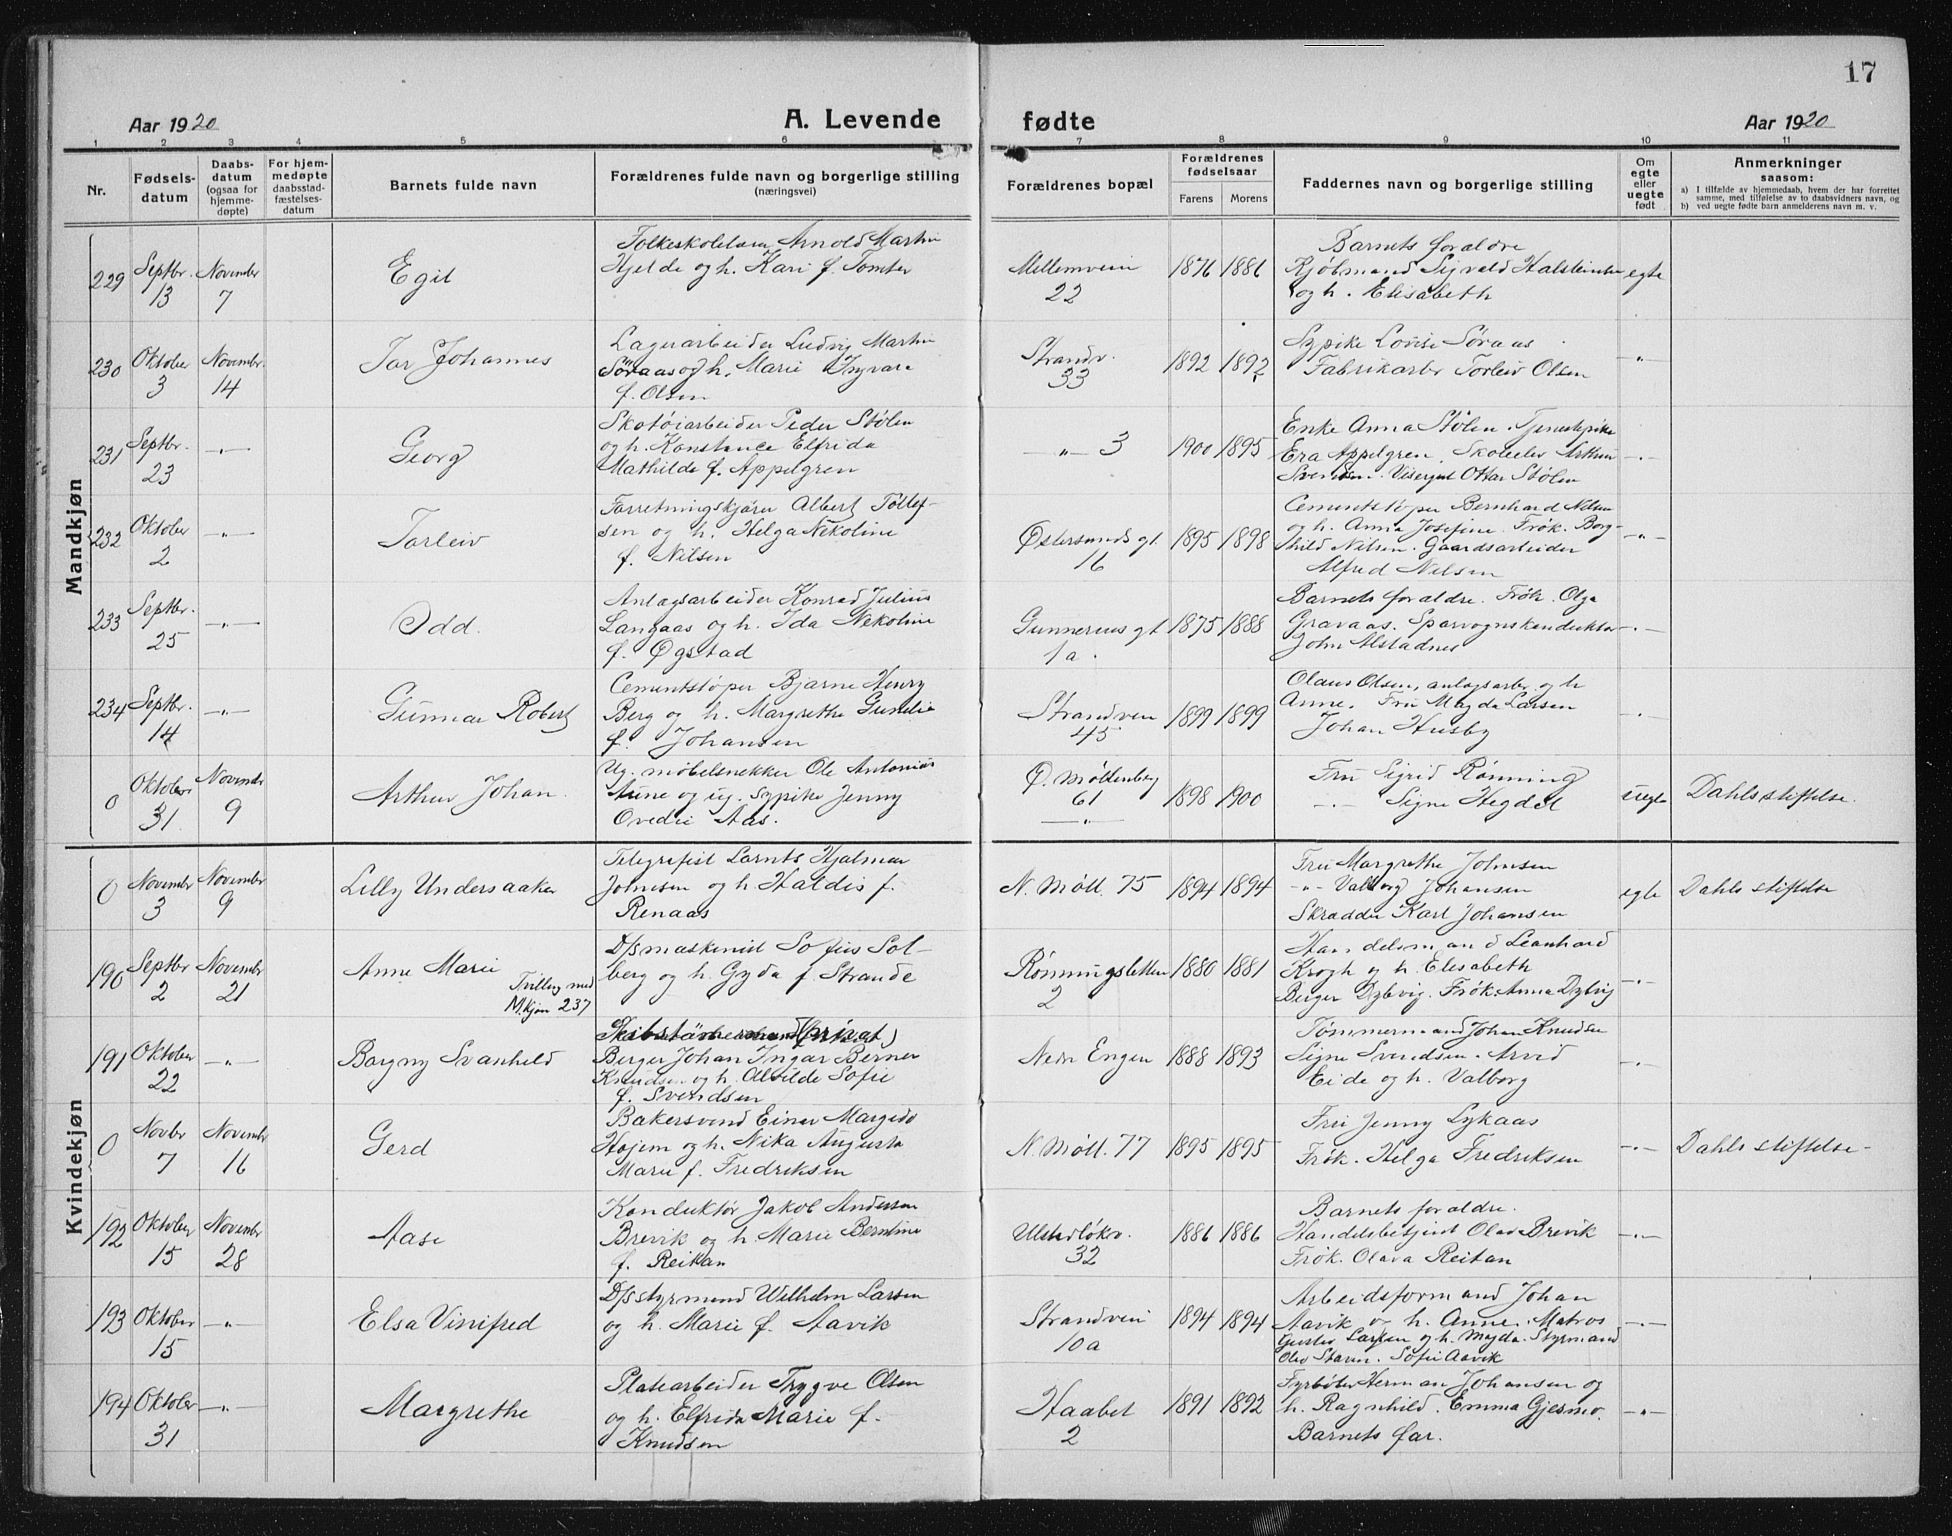 17
Aar 1920
A. Levende
fødte
Aar 1920
1 2 3 4 5 6 7 8 9 10 11
Nr.
Fødsels-
datum
Daabs-
datum
(ogsaa for
hjemme-
døpte)
For hjem-
medøpte
daabsstad-
fæstelses-
datum
Barnets fulde navn
Forældrenes fulde navn og borgerlige stilling
(næringsvei)
Forældrenes bopæl
Forældrenes
fødselsaar
Farens
Morens
Faddernes navn og borgerlige stilling
Om
egte
eller
uegte
født
Anmerkninger
saasom:
a) I tilfælde av hjemmedaab, hvem der har forrettet
samme, med tilføielse av to daabsvidners navn, og
b) ved uegte fødte barn anmelderens navn m. v.
Mandkjøn
229
Septbr.
13
November
7
Egil
Arnold Martin
Hjelde og h. Kari f. Tomter
Mellemveien
22
1876 1886
Barnets forældre
Kjøbmand Sigvald
og h. Elisabeth
egte
230
Oktober
3
Novembr.
14
Tor Johannes
Lagerarbeider Ludvig Martin
Søraas og h. Marie Ingvara
f. Olsen
Strandv.
33
1892 1892
Sypike Lovise Søraas
Fabrikarbr Torleiv Olsen
-"-
231
Septbr.
23
-"-
Georg
Skotøiarbeider Peder Stølen
og h. Konstance Elfrida
Mathilde f. Appelgren
-"- 3
1900 1895
Enke Anna Stølen. Tjenestepike
Era Appelgren. Skoleelev Arthur
Svendsen. Visergut Ottar Stølen
-"-
232
Oktober
2
-"-
Torleiv
Forretningskjører Albert Tollef-
sen og h. Helga Nekoline
f. Nilsen
Østersunds gt.
16
1895 1898
Cementstøper Bernhard Nilsen
og h. Anna Josefine. Frøk. Borg-
hild Nilsen. Gaardsarbeider
Alfred Nilsen
-"-
233
Septbr.
25
-"-
Odd.
Anlægsarbeider Konrad Julius
Langaas og h. Ida Nekoline
f. Øgstad
Gunnerus gt
1a.
1875 1888
Barnets forældre. Frøk. Olga
Gravaas. Sporvognskonduktør
John Alstadnes
-"-
234
Septbr.
14
-"-
Gunnar Robert
Cementstøper Bjarne Henry
Berg og h. Margrethe Gunelie
f. Johansen
Strandveien
45
1899 1899
Olaus Olsen, anlægsarbr. og h
Anne. Fru Magda Larsen
Johan Husby
-"-
0
Oktober
31
Novembr
9
Arthur Johan.
Ug. møbelsnekker Ole Antonius
Aune og ug. Sypike Jenny
Ovedie Aas.
Ø. Møllenberg
61
-"-
1898 1900
Fru Sigrid Rønning
-"- Signe Hegdal
uegte
Dahls stiftelse.
Kvindekjøn
0
Novembr
3
Novembr
9
Lilly Undersaaker
Telegrafist Lornts Hjalmar
Johnsen og h. Haldis f.
Renaas
N. Møll. 75
1894 1894
Fru Margrethe Johnsen
-"- Valborg Johansen
Skrædder Karl Johansen
egte
Dahls stiftelse
190
Septbr
2
Novembr
21
Anne Marie
Tvilling med
M.kjøn 237
D/s maskinist Sofus Sol-
berg og h. Gyda f. Strande
Rønningsletten
2
1880 1881
Handelsmand Leonhard
Krogh og h. Elisabeth
Berger Dybvig. Frøk. Anna Dybvig
-"-
191
Oktober
22
-"-
Borgny Svanhild
(privat)
Berger Johan Ingar Berner
Knudsen og h. Alvilde Sofie
f. Svendsen
Nedr Engen
1888 1893
Tømmermand Johan Knudsen
Signe Svendsen. Arvid
Eide og h. Valborg
-"-
0
Novbr
7
Novembr
16
Gerd
Bakersvend Einar Margido
Hojem og h. Nika Augusta
Marie f. Fredriksen
N. Møll. 77
1895 1895
Fru Jenny Lykaas
Frøk. Helga Fredriksen
-"-
Dahls stiftelse-
192
Oktober
15
Novembr
28
Aase
Konduktør Jakob Andersen
Brevik og h. Marie Berntine
f. Reitan
Ulstadløkv.
32
1886 1886
Barnets forældre.
Handelsbetjent Olav Brevik
Frøk. Olava Reitan
-"-
193
Oktober
15
-"-
Elsa Vinifred
D/s styrmand Wilhelm Larsen
og h. Marie f. Aavik
Strandveien
10a
1894 1894
Arbeidsformand Johan
Aavik og h. Anne. Matros
Gustav Larsen og h. Magda. Styrmand
Olav Staren. Sofie Aavik
-"-
194
Oktober
31
-"-
Margrethe
Platearbeider Trygve Olsen
og h. Elfrida Marie f.
Knudsen
Haabet
2
1891 1892
Fyrbøter Herman Johansen og
h. Ragnhild. Emma Gjesmo.
Barnets far.
-"-